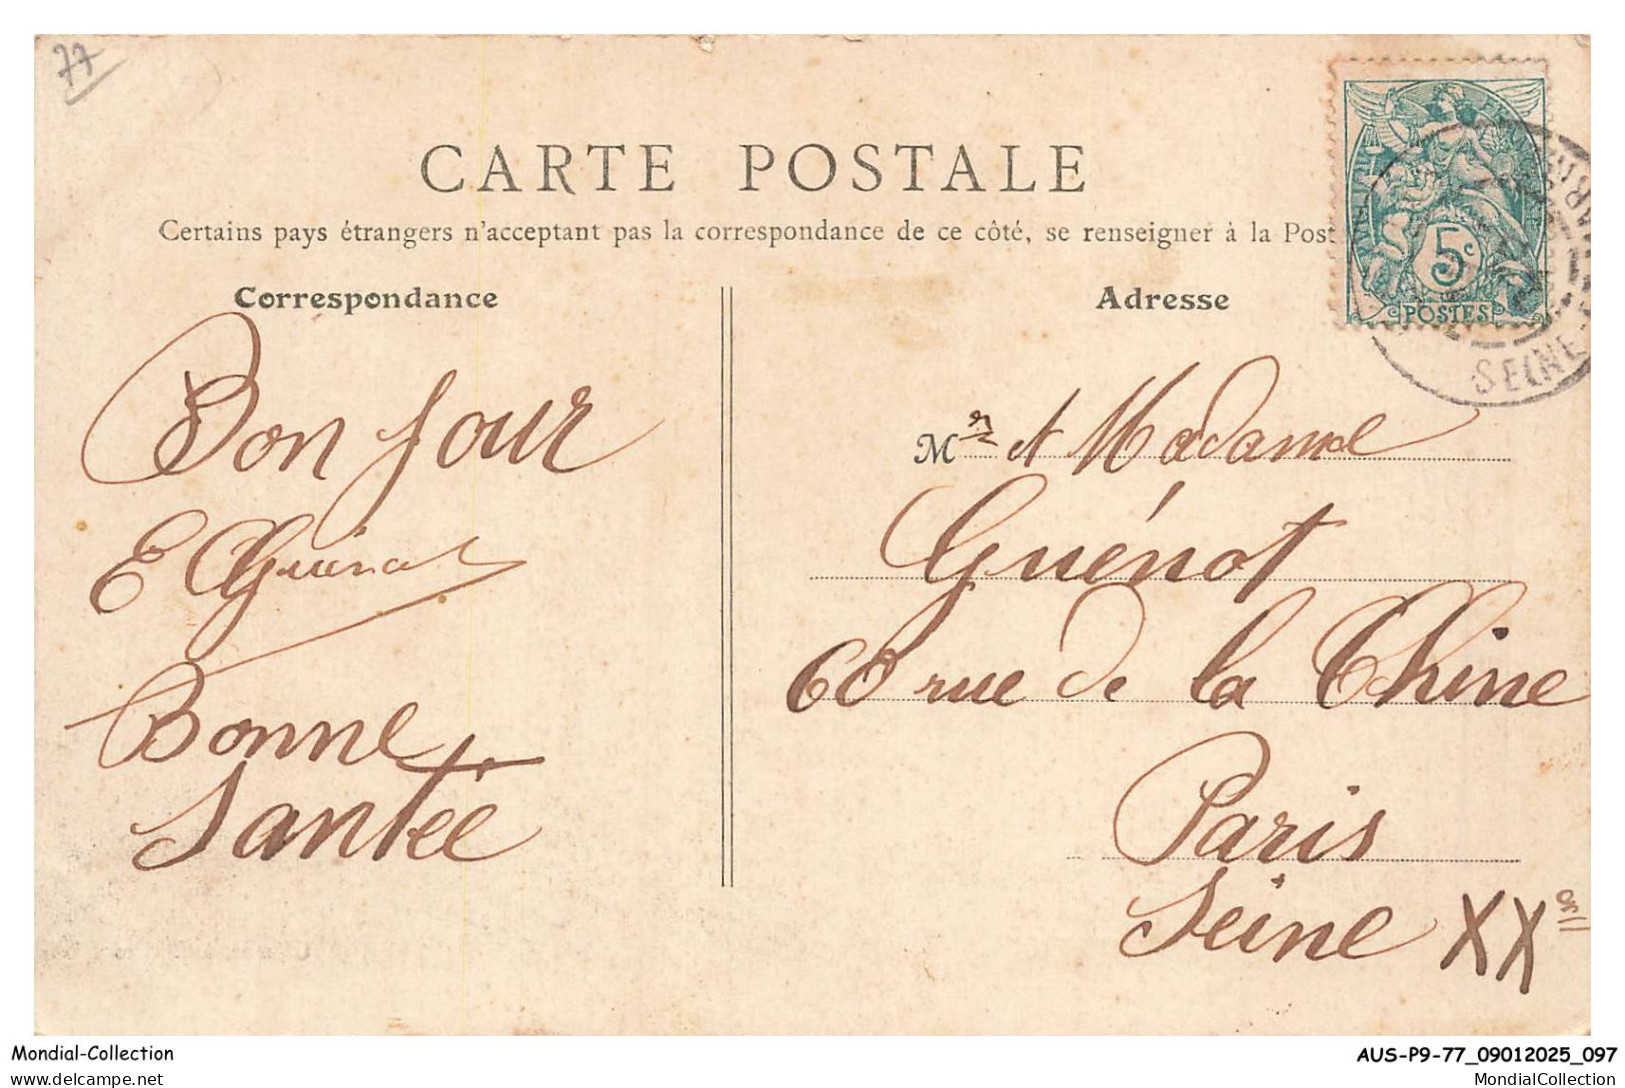 77
CARTE POSTALE
Certains pays étrangers n'acceptant pas la correspondance de ce côté, se renseigner à la Post
Correspondance
Bon jour
E Guénot
Bonne
Santée
Adresse
Mr et Madame
Guénot
60 rue de la Chine
Paris
Seine XX
5c
POSTES
SEINE
Mondial-Collection
delcampe.net
AUS-P9-77_09012025_097
MondialCollection